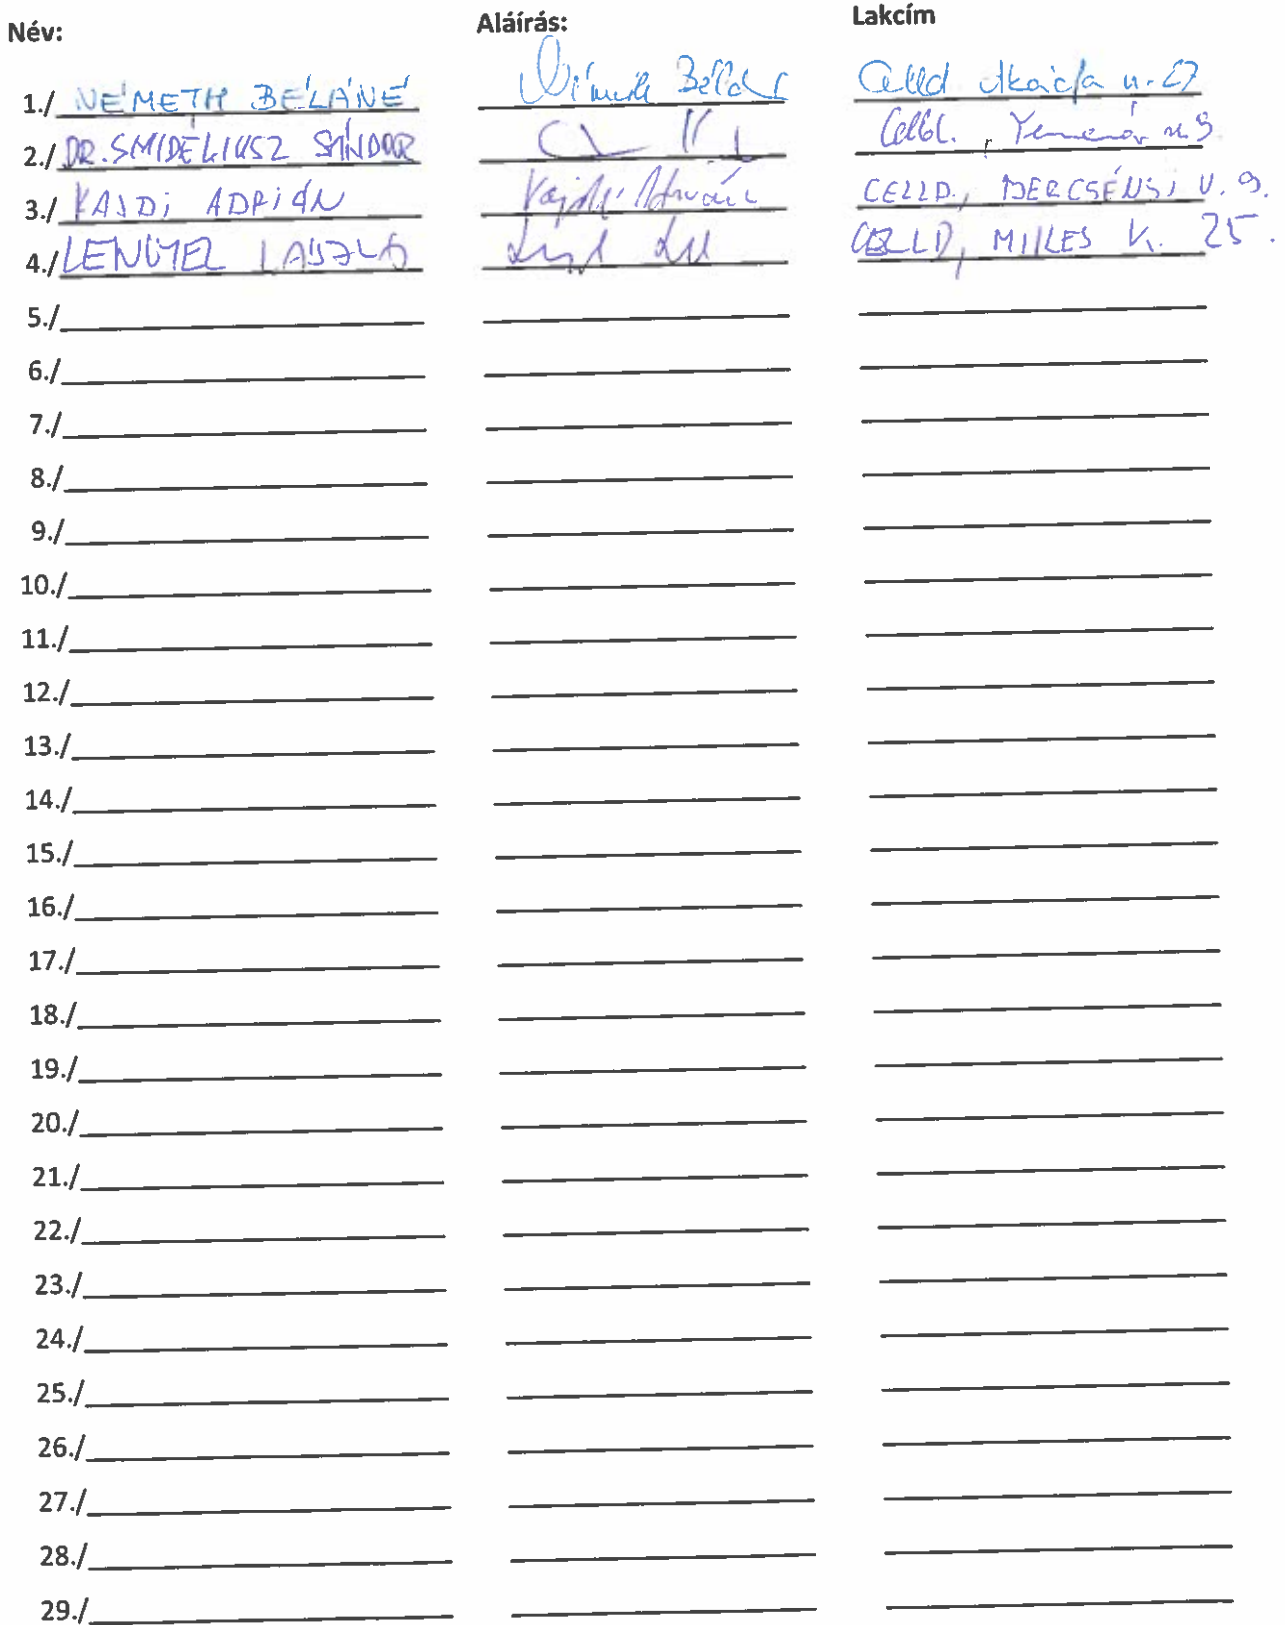 Név: Aláírás: Lakcím
1./ NÉMETH BÉLÁNÉ Németh Bélá Celld Akácfa u. 27
2./ DR. SMIDÉLIUSZ SÁNDOR Celld., u. 9
3./ VAJDI ADRIÁN Vajdi Adrián CELLD., BERCSÉNYI U. 9.
4./ LENGYEL LÁSZLÓ CELLD, MIKES K. 25.
5./
6./
7./
8./
9./
10./
11./
12./
13./
14./
15./
16./
17./
18./
19./
20./
21./
22./
23./
24./
25./
26./
27./
28./
29./